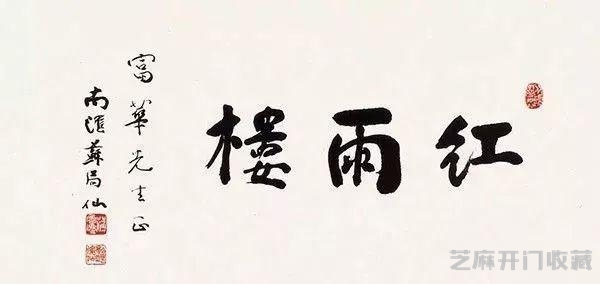 红雨樓
富華先生正
南滙蘇局仙
芝麻开门收藏